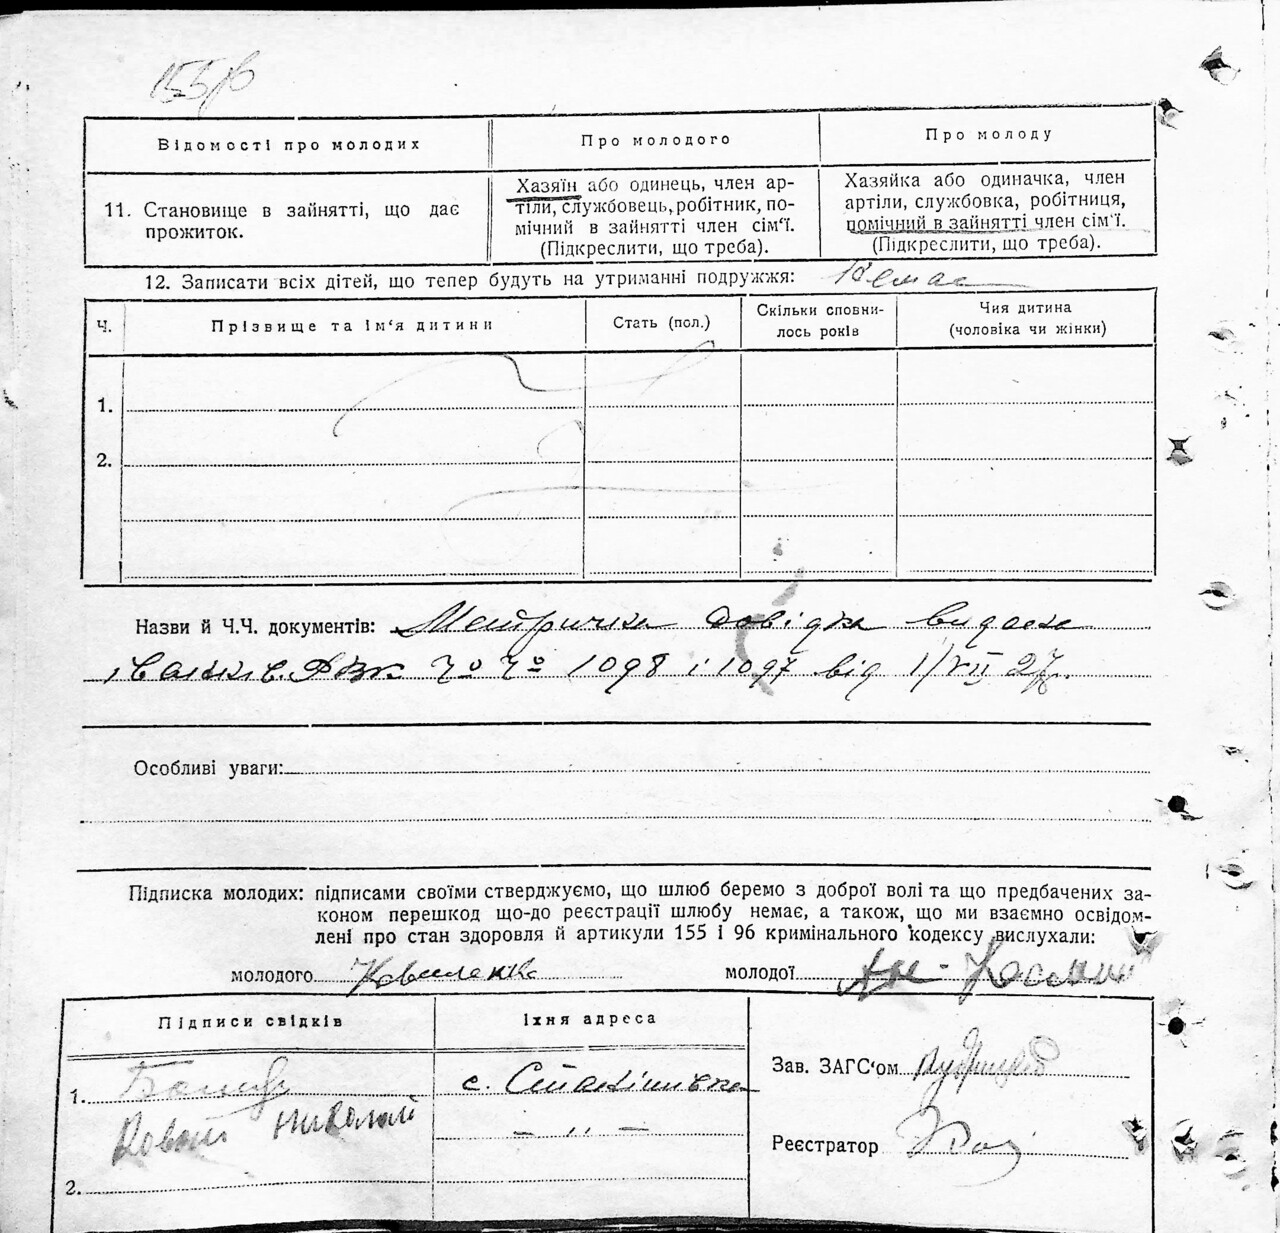 Відомості про молодих
Про молодого
Про молоду
11. Становище в зайнятті, що дає
прожиток.
Хазяїн або одинець, член ар-
тіли, службовець, робітник, по-
мічний в зайнятті член сім'ї.
(Підкреслити, що треба).
Хазяйка або одиначка, член
артіли, службовка, робітниця,
помічний в зайнятті член сім'ї.
(Підкреслити, що треба).
12. Записати всіх дітей, що тепер будуть на утриманні подружжя: Немає
Ч.
Прізвище та ім'я дитини
Стать (пол.)
Скільки сповни-
лось років
Чия дитина
(чоловіка чи жінки)
1.
2.
Назви й Ч.Ч. документів: Метрична довідка видана
1098 і 1097 від 1/VII 27р.
Особливі уваги:
Підписка молодих: підписами своїми стверджуємо, що шлюб беремо з доброї волі та що предбачених за-
коном перешкод що-до реєстрації шлюбу немає, а також, що ми взаємно освідом-
лені про стан здоровля й артикули 155 і 96 кримінального кодексу вислухали:
молодого
молодої
Підписи свідків
Їхня адреса
1.
с. Степанівка
Николай
— „ —
2.
Зав. ЗАГС'ом
Реєстратор